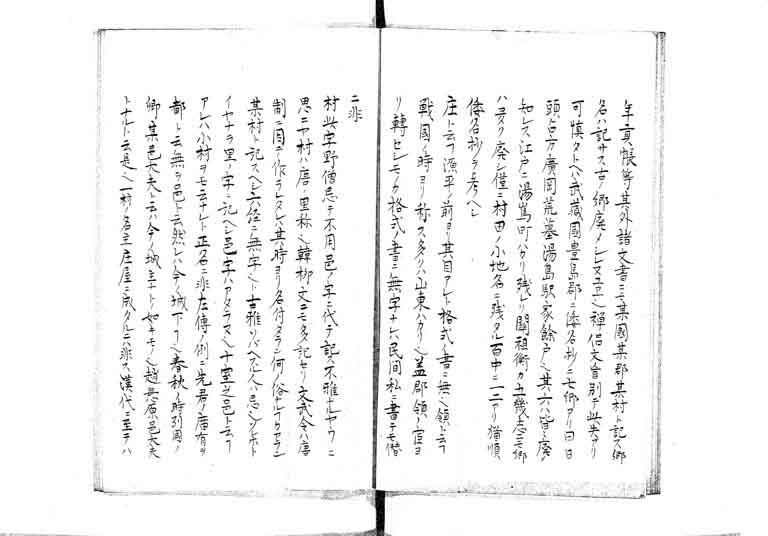 年貢帳等其外諸文書ニモ某國某郡某村ト記ス郷
名ハ記サス古ノ郷廃タレハ又ヱ乄禅侶文盲別テ此失アリ
可慎タトヘハ武藏國豊島郡ニ倭名抄ニ七郷アリ曰日
頭占方廣岡荒墓湯島駅家餘戸也其六ハ皆廃ノ
知レス江戸ニ湯嶌町バカリ残レリ關祖衡カ五幾志ニモ郷
ハ尽ク廃シ僅ニ村田ノ小地名ニ残タル百中ニ一二アリ猶順
倭名抄ヲ考ヘシ
庄ト云フ源平ノ前ヨリ其目アレト格式ノ書ニ無シ領ト云フ
戦国ノ時ヨリ称ス多クハ山東ハカリ也蓋郡領ノ官ヨ
リ轉セシモノカ格式ノ書ニ無字ナレハ民間私ニ書テモ僭
ニ非
村此字野僧忌テ不用邑ノ字ニ代テ記ス不雅ナルヤウニ
思ニヤ村ハ唐ノ里称也韓柳文ニモ多ク記セリ文武令ハ唐
制ニ因テ作ラレタレハ其時ヨリ名付タラン何ノ俗ナルカアラン
某村ト記スヘシ六経ニ無字也ト古雅リハヘル人ノ忌ムナレト
イヤナラ里ノ字ニ記ヘシ邑字ハアタラス也十室之邑ト云フ
アレハ小村ヲモ云ナレト正名ニ非左傳ノ例ニ先君ノ廟有ヲ
都ト云無ヲ邑ト云然レハ今ノ城下リ也春秋ノ時列國ノ
卿某邑大夫ト云ハ今ノ城主ナトノ如キモノ也趙衰原邑大夫
トナルト云是也一村ノ名主庄屋ニ成タルニハ非ス漢代ニ至テハ